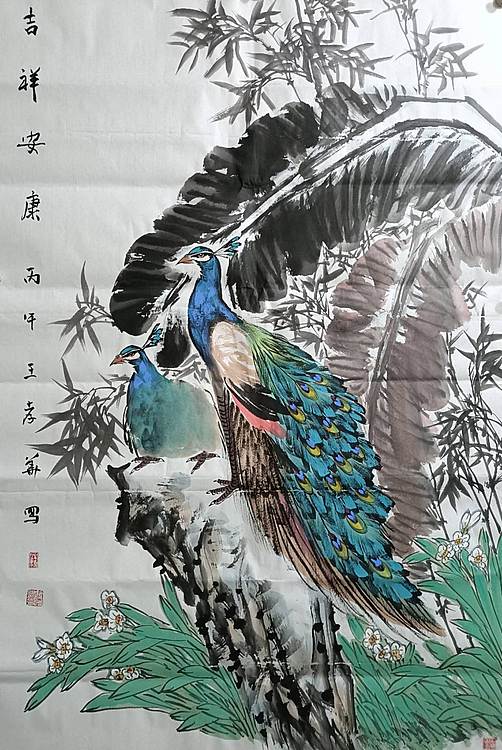 吉祥安康 丙午 王孝華 写